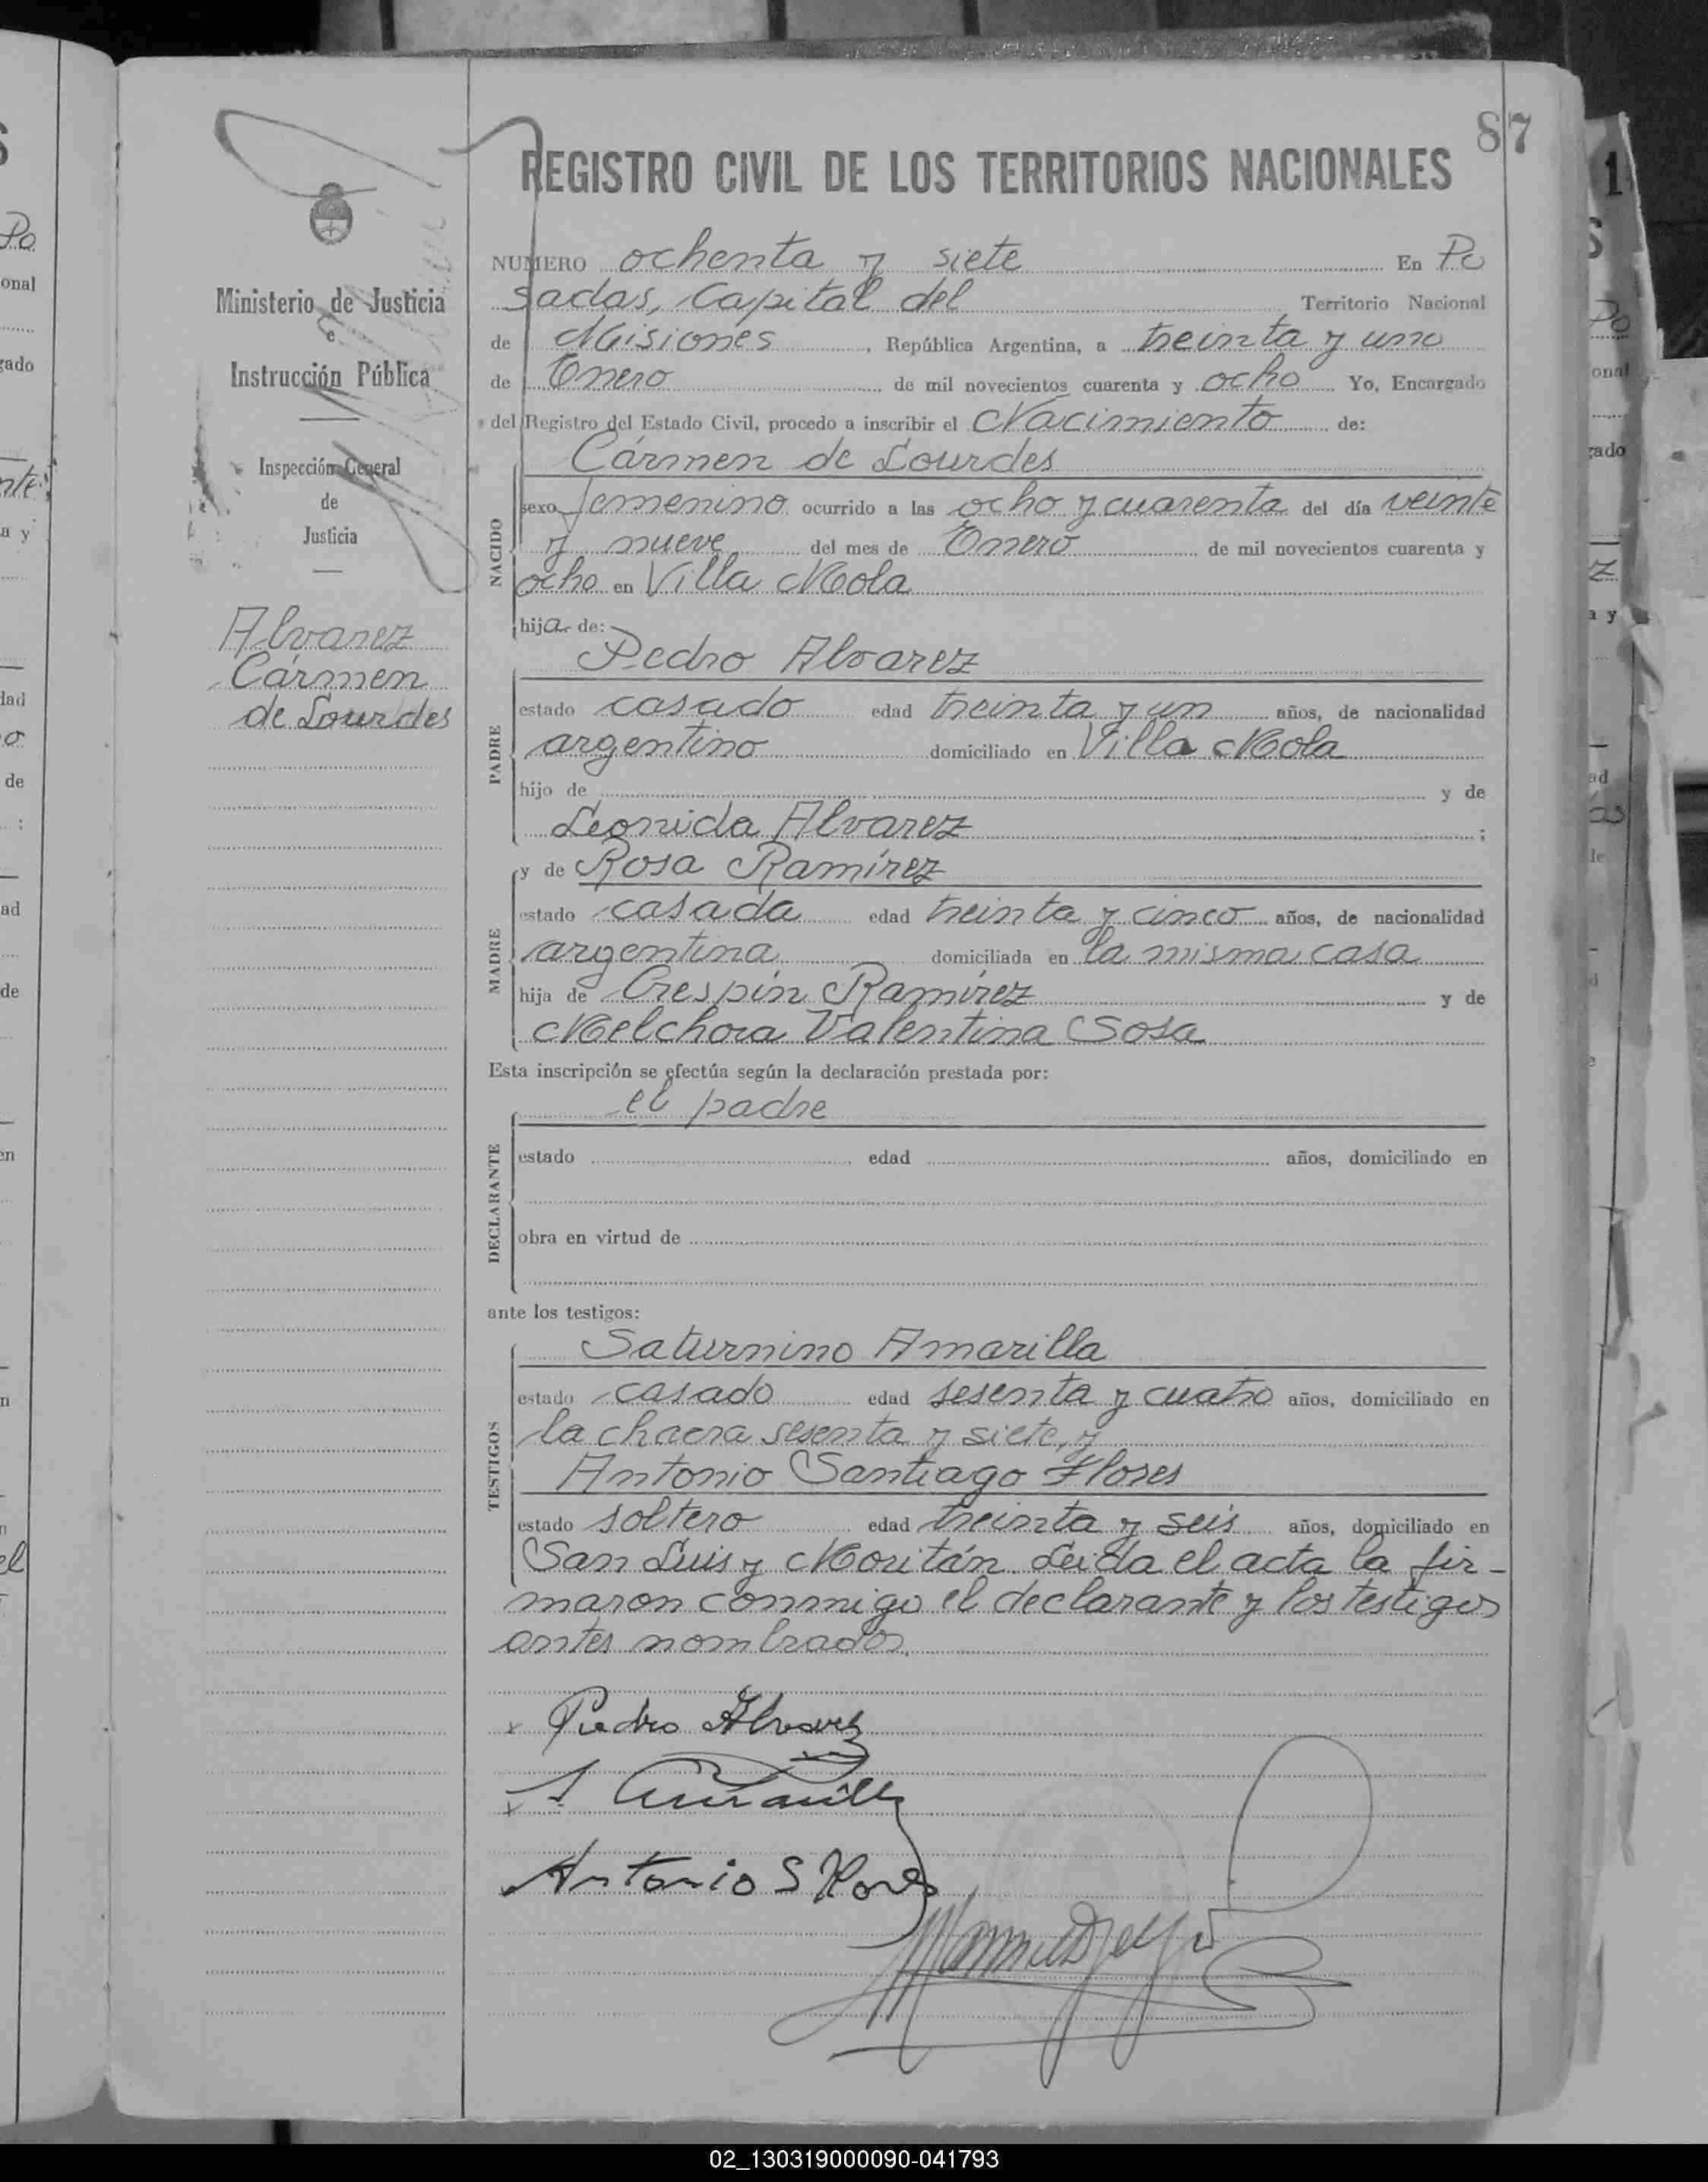 87
REGISTRO CIVIL DE LOS TERRITORIOS NACIONALES
Ministerio de Justicia
e
Instrucción Pública
Inspección General
de
Justicia
Alvarez
Cármen
de Lourdes
NUMERO ochenta y siete En Po
sadas, Capital del Territorio Nacional
de Misiones, República Argentina, a treinta y uno
de Enero de mil novecientos cuarenta y ocho Yo, Encargado
del Registro del Estado Civil, procedo a inscribir el Nacimiento de:
NACIDO
Cármen de Lourdes
sexo femenino ocurrido a las ocho y cuarenta del día veinte
y nueve del mes de Enero de mil novecientos cuarenta y
ocho en Villa Mola
hija de:
PADRE
Pedro Alvarez
estado casado edad treinta y un años, de nacionalidad
argentino domiciliado en Villa Mola
hijo de y de
Leonida Alvarez ;
MADRE
y de Rosa Ramírez
estado casada edad treinta y cinco años, de nacionalidad
argentina domiciliada en la misma casa
hija de Crespín Ramírez y de
Melchora Valentina Sosa
Esta inscripción se efectúa según la declaración prestada por:
DECLARANTE
el padre
estado edad años, domiciliado en
obra en virtud de
ante los testigos:
TESTIGOS
Saturnino Amarilla
estado casado edad sesenta y cuatro años, domiciliado en
la chacra sesenta y siete, y
Antonio Santiago Flores
estado soltero edad treinta y seis años, domiciliado en
San Luis y Moritán. Leida el acta la fir-
maron conmigo el declarante y los testigos
antes nombrados.
Pedro Alvarez
S Amarilla
Antonio S Flores
02_130319000090-041793